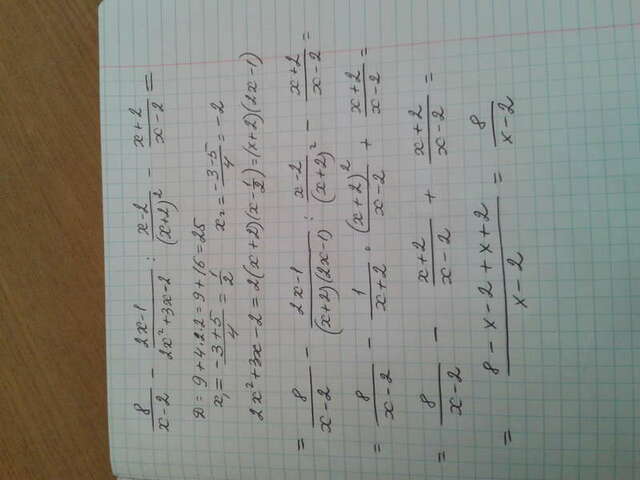 8/(x-2) - (2x-1)/(2x²+3x-2) : (x-2)/(x+2)² - (x+2)/(x-2) =
D = 9+4·2·2 = 9+16 = 25
x₁ = (-3+5)/4 = 1/2 x₂ = (-3-5)/4 = -2
2x²+3x-2 = 2(x+2)(x-1/2) = (x+2)(2x-1)
= 8/(x-2) - (2x-1)/((x+2)(2x-1)) : (x-2)/(x+2)² - (x+2)/(x-2) =
= 8/(x-2) - 1/(x+2) · (x+2)²/(x-2) + (x+2)/(x-2) =
= 8/(x-2) - (x+2)/(x-2) + (x+2)/(x-2) =
= (8-x-2+x+2)/(x-2) = 8/(x-2)